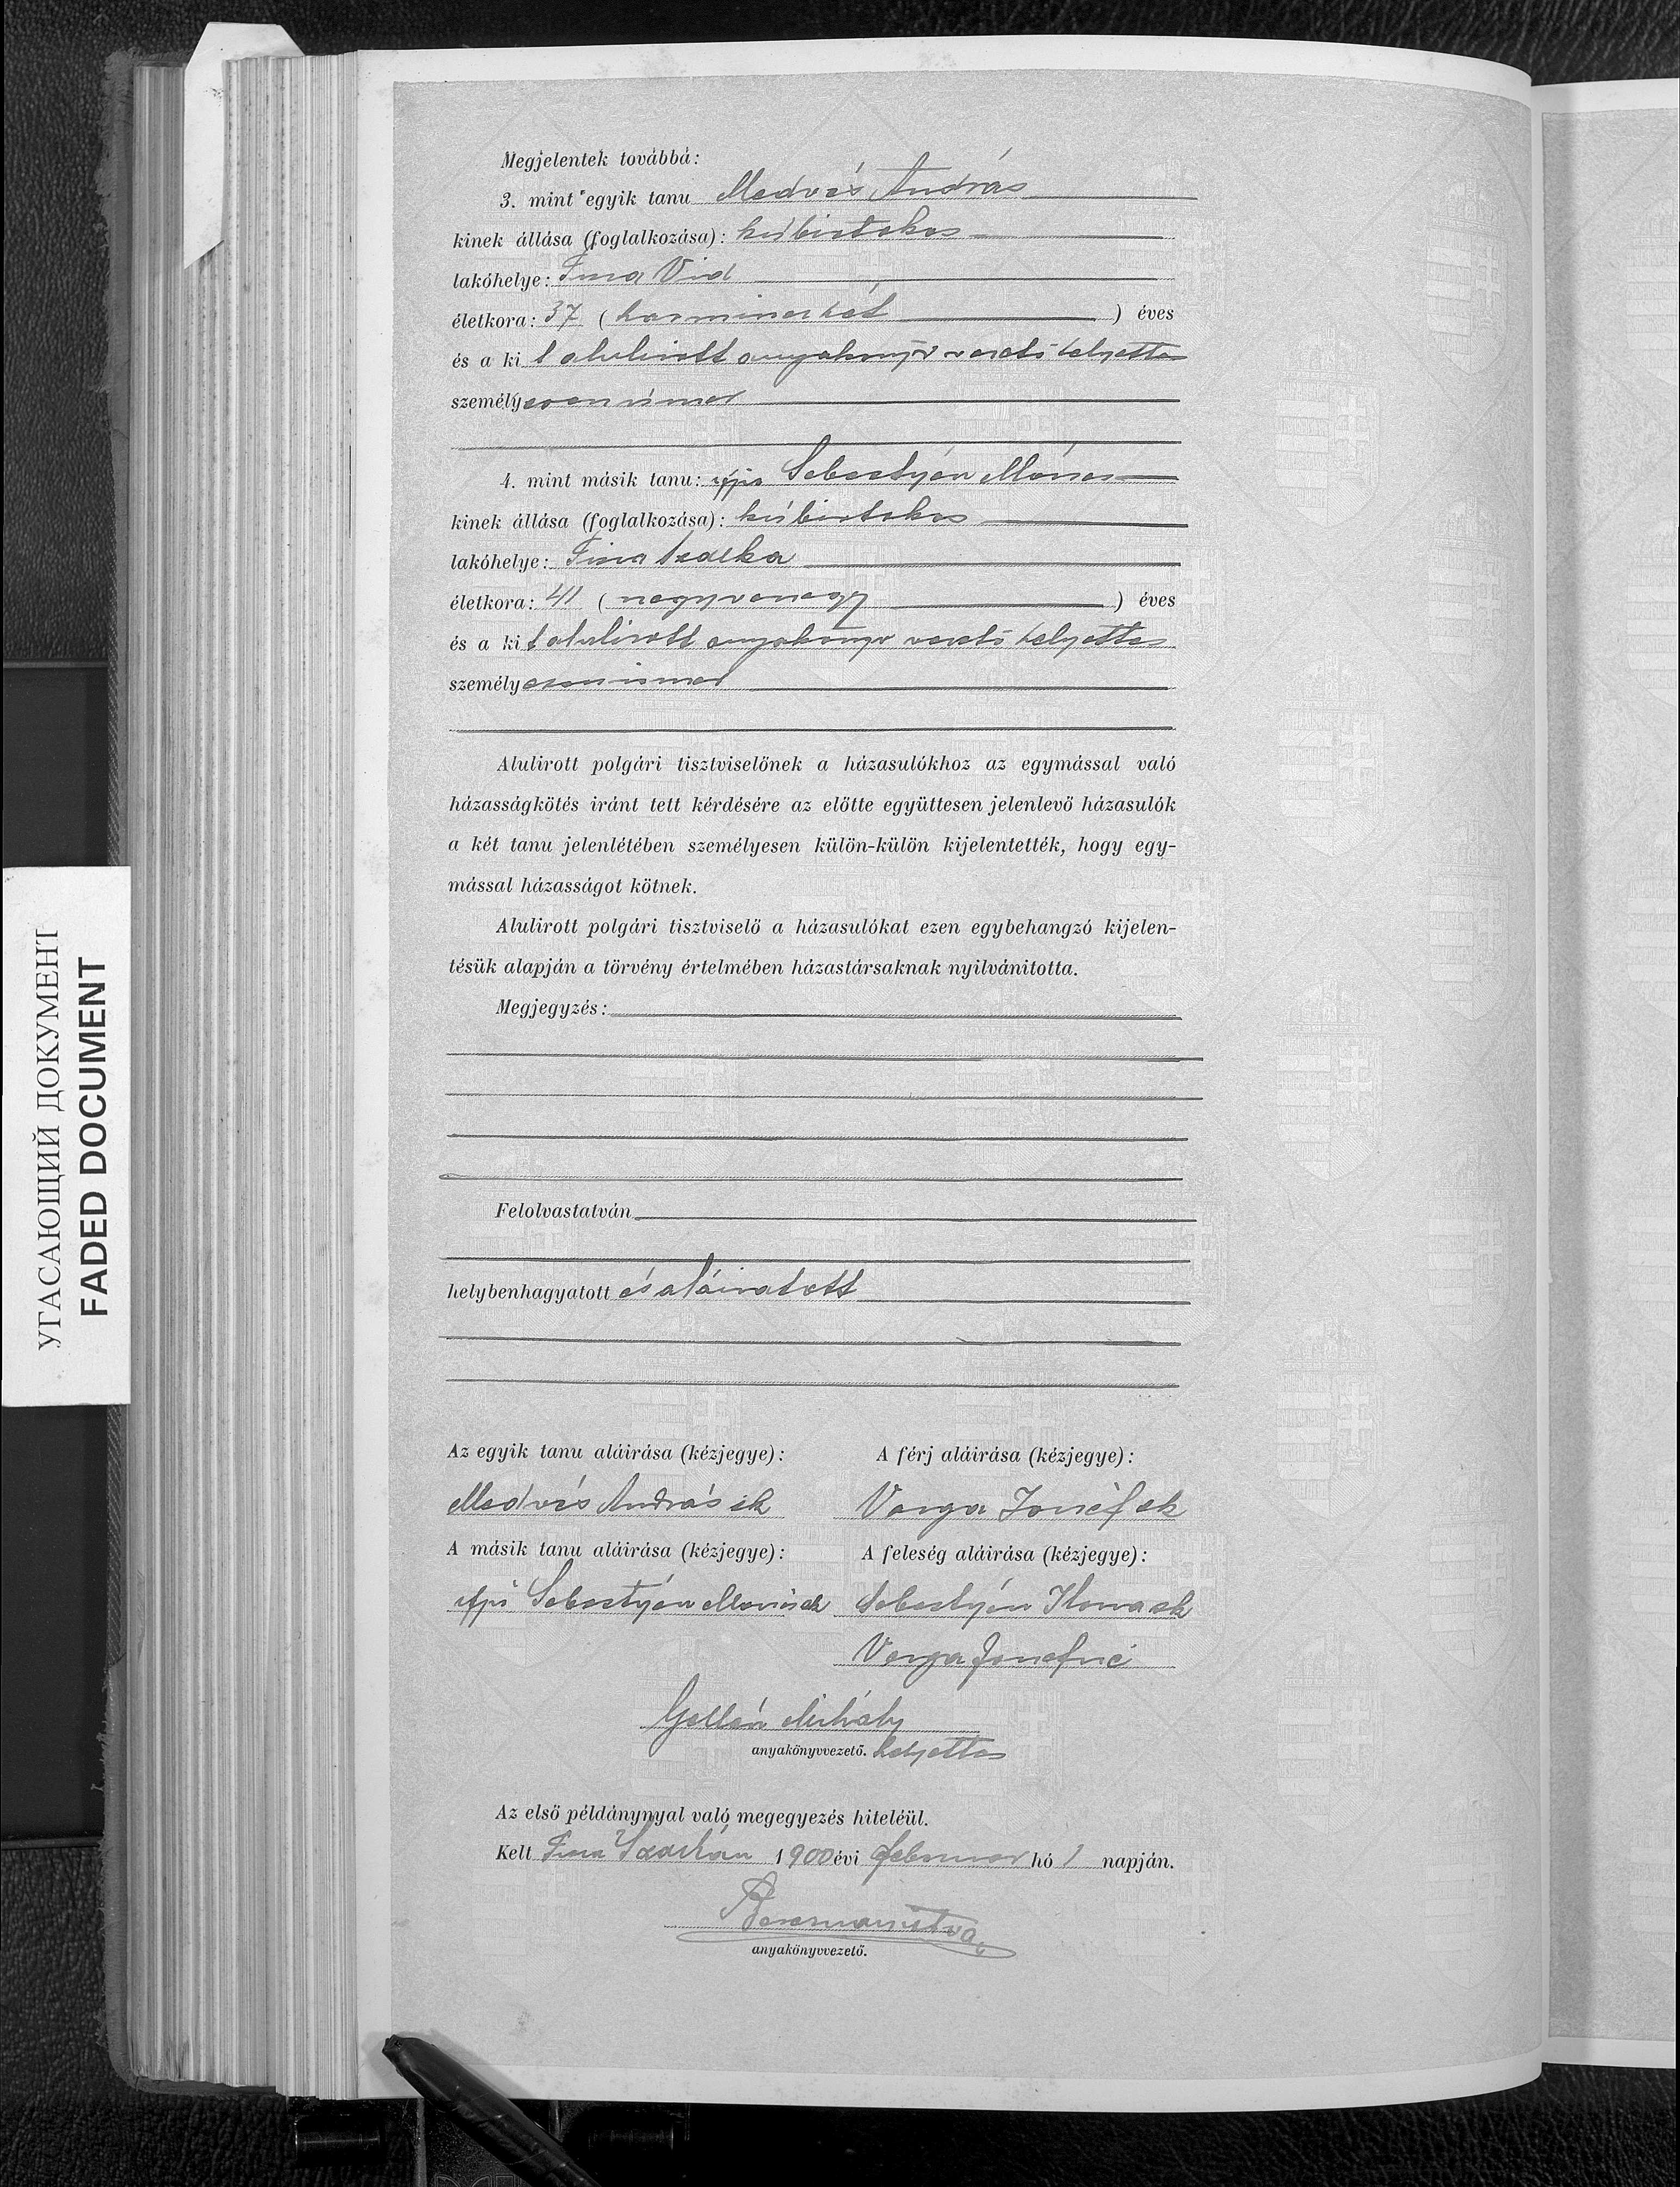 Megjelentek továbbá:
3. mint egyik tanu Medvés András
kinek állása (foglalkozása): kisbirtokos
lakóhelye: Tisza Vid
életkora: 37 (harminchét) éves
és a ki t alulirott anyakönyv vezető helyettes
személyesen ismer
4. mint másik tanu: ifju Sebestyén Mózes
kinek állása (foglalkozása): kisbirtokos
lakóhelye: Tisza Szalka
életkora: 41 (negyvenegy) éves
és a ki t alulirott anyakönyv vezető helyettes
személyesen ismer
Alulirott polgári tisztviselőnek a házasulókhoz az egymással való
házasságkötés iránt tett kérdésére az előtte együttesen jelenlevő házasulók
a két tanu jelenlétében személyesen külön-külön kijelentették, hogy egy-
mással házasságot kötnek.
Alulirott polgári tisztviselő a házasulókat ezen egybehangzó kijelen-
tésük alapján a törvény értelmében házastársaknak nyilvánitotta.
Megjegyzés:
Felolvastatván
helybenhagyatott és aláiratott
Az egyik tanu aláirása (kézjegye): A férj aláirása (kézjegye):
Medvés András sk Varga József sk
A másik tanu aláirása (kézjegye): A feleség aláirása (kézjegye):
ifju Sebestyén Mózes sk Sebestyén Ilona sk
Varga Józsefné
Gellén Mihály
anyakönyvvezető. helyettes
Az első példánynyal való megegyezés hiteléül.
Kelt Tisza Szalkán 1900 évi Februar hó 1 napján.
anyakönyvvezető.
УГАСАЮЩИЙ ДОКУМЕНТ
FADED DOCUMENT